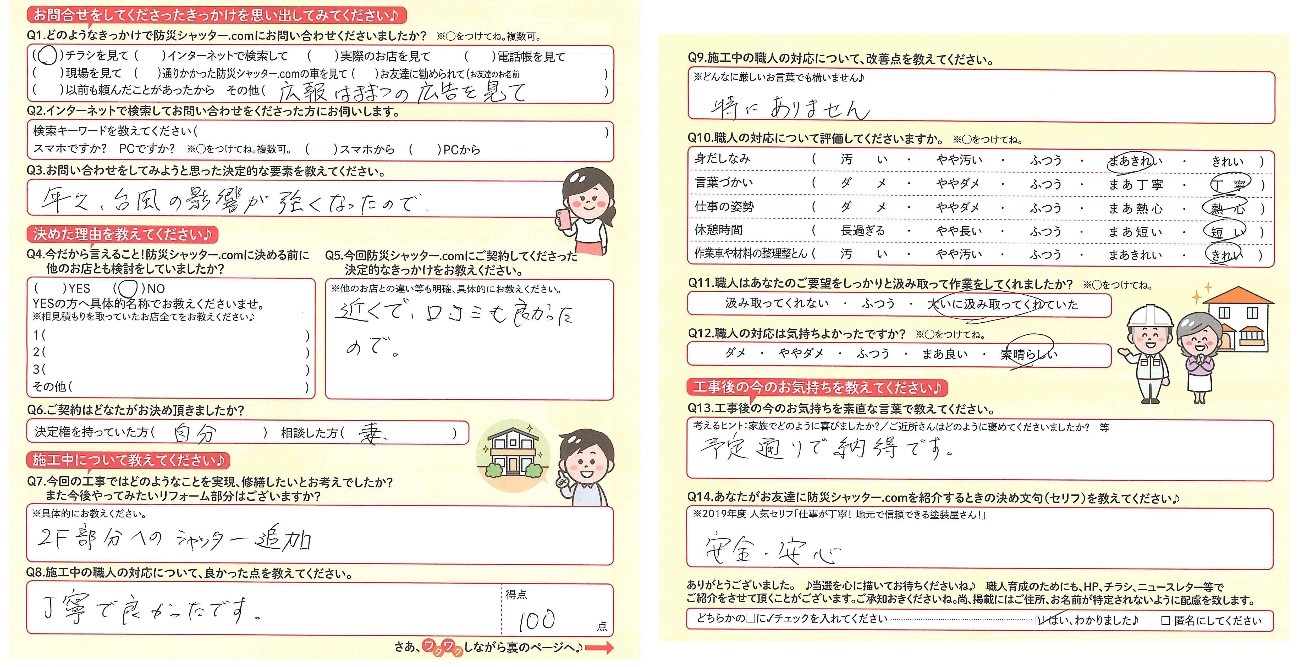 お問合せをしてくださったきっかけを思い出してみてください♪
Q1.どのようなきっかけで防災シャッター.comにお問い合わせくださいましたか? ※○をつけてね。複数可。
(○)チラシを見て ( )インターネットで検索して ( )実際のお店を見て ( )電話帳を見て
( )現場を見て ( )通りかかった防災シャッター.comの車を見て ( )お友達に勧められて(お友達のお名前 )
( )以前も頼んだことがあったから その他( 広報はままつの広告を見て )
Q2.インターネットで検索してお問い合わせをくださった方にお伺いします。
検索キーワードを教えてください( )
スマホですか? PCですか? ※○をつけてね。複数可。 ( )スマホから ( )PCから
Q3.お問い合わせをしてみようと思った決定的な要素を教えてください。
年々、台風の影響が強くなったので
決めた理由を教えてください♪
Q4.今だから言えること!防災シャッター.comに決める前に
他のお店とも検討をしていましたか?
( )YES (○)NO
YESの方へ具体的名称でお教えくださいませ。
※相見積もりを取っていたお店全てをお教えください♪
1( )
2( )
3( )
その他( )
Q5.今回防災シャッター.comにご契約してくださった
決定的なきっかけをお教えください。
※他のお店との違い等も明確、具体的にお教えください。
近くで、口コミも良かった
ので。
Q6.ご契約はどなたがお決め頂きましたか?
決定権を持っていた方( 自分 ) 相談した方( 妻、 )
施工中について教えてください♪
Q7.今回の工事ではどのようなことを実現、修繕したいとお考えでしたか?
また今後やってみたいリフォーム部分はございますか?
※具体的にお教えください。
2F部分へのシャッター追加
Q8.施工中の職人の対応について、良かった点を教えてください。
丁寧で良かったです。
得点
100 点
さあ、ワクワクしながら裏のページへ♪
Q9.施工中の職人の対応について、改善点を教えてください。
※どんなに厳しいお言葉でも構いません♪
特にありません
Q10.職人の対応について評価してくださいますか。 ※○をつけてね。
身だしなみ ( 汚い ・ やや汚い ・ ふつう ・ まあきれい ・ きれい )
言葉づかい ( ダメ ・ ややダメ ・ ふつう ・ まあ丁寧 ・ 丁寧 )
仕事の姿勢 ( ダメ ・ ややダメ ・ ふつう ・ まあ熱心 ・ 熱心 )
休憩時間 ( 長過ぎる ・ やや長い ・ ふつう ・ まあ短い ・ 短い )
作業車や材料の整理整とん ( 汚い ・ やや汚い ・ ふつう ・ まあきれい ・ きれい )
Q11.職人はあなたのご要望をしっかりと汲み取って作業をしてくれましたか? ※○をつけてね。
汲み取ってくれない ・ ふつう ・ 大いに汲み取ってくれていた
Q12.職人の対応は気持ちよかったですか? ※○をつけてね。
ダメ ・ ややダメ ・ ふつう ・ まあ良い ・ 素晴らしい
工事後の今のお気持ちを教えてください♪
Q13.工事後の今のお気持ちを素直な言葉で教えてください。
考えるヒント:家族でどのように喜びましたか?/ご近所さんはどのように褒めてくださいましたか? 等
予定通りで納得です。
Q14.あなたがお友達に防災シャッター.comを紹介するときの決め文句(セリフ)を教えてください♪
※2019年度 人気セリフ「仕事が丁寧! 地元で信頼できる塗装屋さん!」
安全・安心
ありがとうございました。 ♪当選を心に描いてお待ちくださいね♪ 職人育成のためにも、HP、チラシ、ニュースレター等で
ご紹介をさせて頂くことがございます。ご承知おきくださいね。尚、掲載にはご住所、お名前が特定されないように配慮を致します。
どちらかの□に✓チェックを入れてください ☑はい、わかりました♪ □匿名にしてください